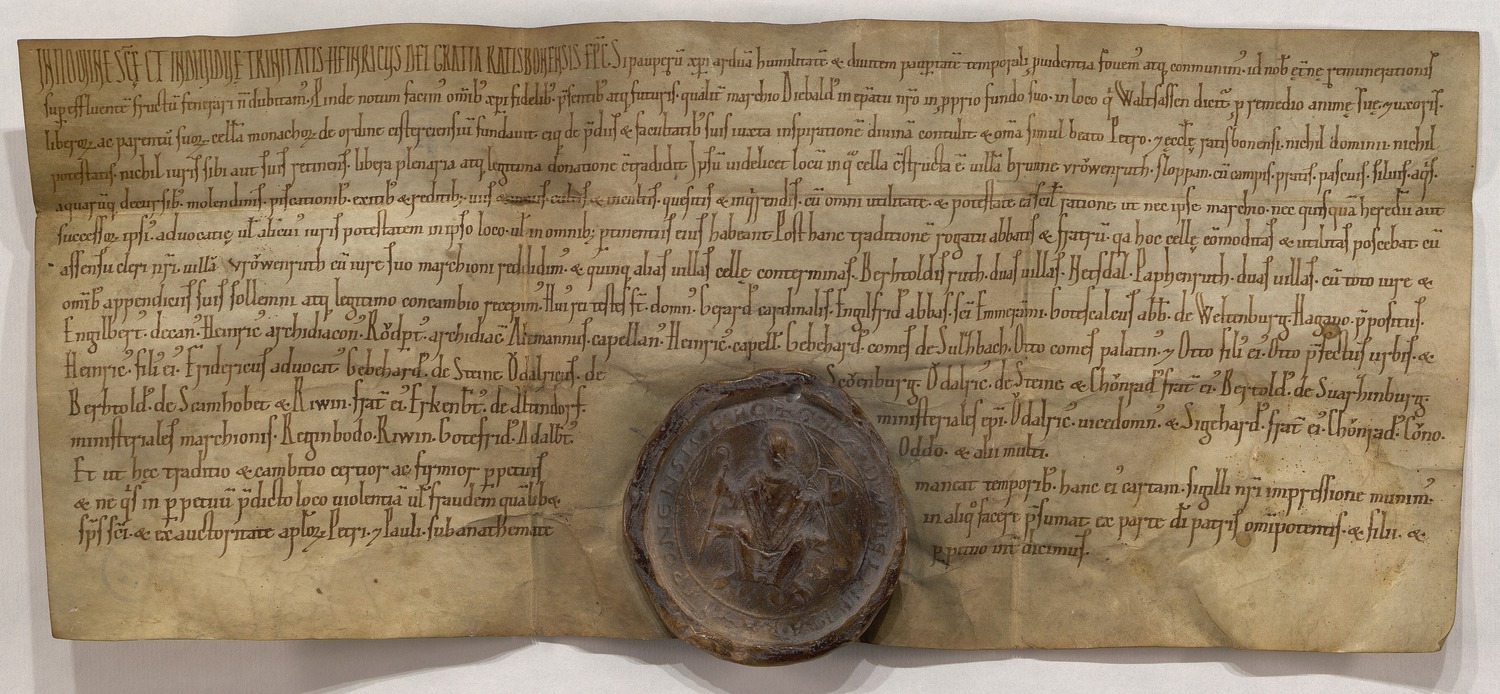 IN NOMINE SCĘ ET INDIVIDUĘ TRINITATIS HEINRICUS DEI GRATIA RATISBONENSIS EPC. Si pauperū xpi arduā humilitatē & diuitem paup̄tatē temporali puidentia fouem' atq; communim'. id nob̄ etn̄ę remunerationis
sup effluentē fructū fenerari n̄ dubitam'. Proinde notum facim' omīb' xpi fidelib' p̄sentib' atq; futuris. qualit' marchio Diebald' in ep̄atu nr̄o in pprio fundo suo. in loco q' Waltsassen dicit' p remedio animę suę. ⁊ uxoris.
liberoꝝ. ac parentū suoꝝ. cellā monachoꝝ de ordine cisterciensiū fundauit. eiq; de p̄diis & facultatib' suis iuxta inspirationē diuinā contulit. & om̄a simul beato Petro. ⁊ ęcclę ratisbonensi. nichil dominii. nichil
potestatis. nichil iuris sibi aut suis retinens. libera plenaria atq; legitima donatione c̄tradidit. Ipsū uidelicet locū in q̊ cella c̄structa ē. uillā brunne. vrŏwenruth. sloppan. cū campis. pratis. pascuis. siluis. aq̄s.
aquarūq; decursib'. molendinis. piscationib'. exitib' & reditib'. uiis & inuiis. cultis & incultis. quęsitis & inq̄rendis. cū omni utilitate. & potestate ea scil' ratione ut nec ipse marchio. nec quisquā heredū aut
successoꝝ ipsi'. aduocatię ul' alicui' iuris potestatem in ipso loco. ul' in omnib; ptinentiis eius habeant. Post hanc traditionē rogatu abbatis & fratrū. q̄a hoc cellę cōmoditas & utilitas poscebat cū
assensu cleri nr̄i. uillā vrŏwenruth cū iure suo marchioni reddidim'. & quinq; alias uillas cellę conterminas. Berhtoldisruth. duas uillas. Hetsdal. Paphenruth. duas uillas. cū toto iure &
omīb' appendiciis suis sollemni atq; legitimo concambio recepim'. Hui' rei testes st̄. domn'. Gerard' cardinalis. Ingilfrid' abbas. sc̄i Emmerāmi. Gotescalcus abb'. de Weltenburg. Hagano. p̄positus.
Engilbert'. decan'. Heinric' archidiacon'. Rŏdpt'. archidiac'. Altmannus. capellan'. Heinric'. capell'. Gebehard'. comes de Sulzbach. Otto comes palatin'. ⁊ Otto fili' ei'. Otto p̄fectus urbis. &
Heinric'. fili' ei'. Fridericus aduocat'. Gebehard'. de Steine. Ŏdalricus. de Scŏenburg. Ŏdalric'. de Steine & Chŏnrad' frat' ei'. Bertold'. de Suarhinburg.
Berhtold'. de Scamhobet & Riwin. frat' ei'. Erkenb't'. de Altindorf. ministeriales epi. Ŏdalric'. uicedomn'. & Sigehard'. frat' ei'. Chŏnrad'. Cŏno.
ministeriales marchionis. Reginbodo. Riwin. Gotefrid'. Adalb't'. Oddo. & alii multi.
Et ut hęc traditio & cambitio certior ac firmior ppetuis maneat temporib'. hanc ei cartam. sigilli nr̄i impressione munim'.
& ne q̄s in ppetuū p̄dicto loco uiolentiā ul' fraudem qualib& in aliq̊ facere p̄sumat ex parte dī patris omīpotentis. & filii. &
sp̄s sc̄i. & ex auctoritate aplōꝝ Petri. ⁊ Pauli. sub anathemate ppetuo int'dicimus.